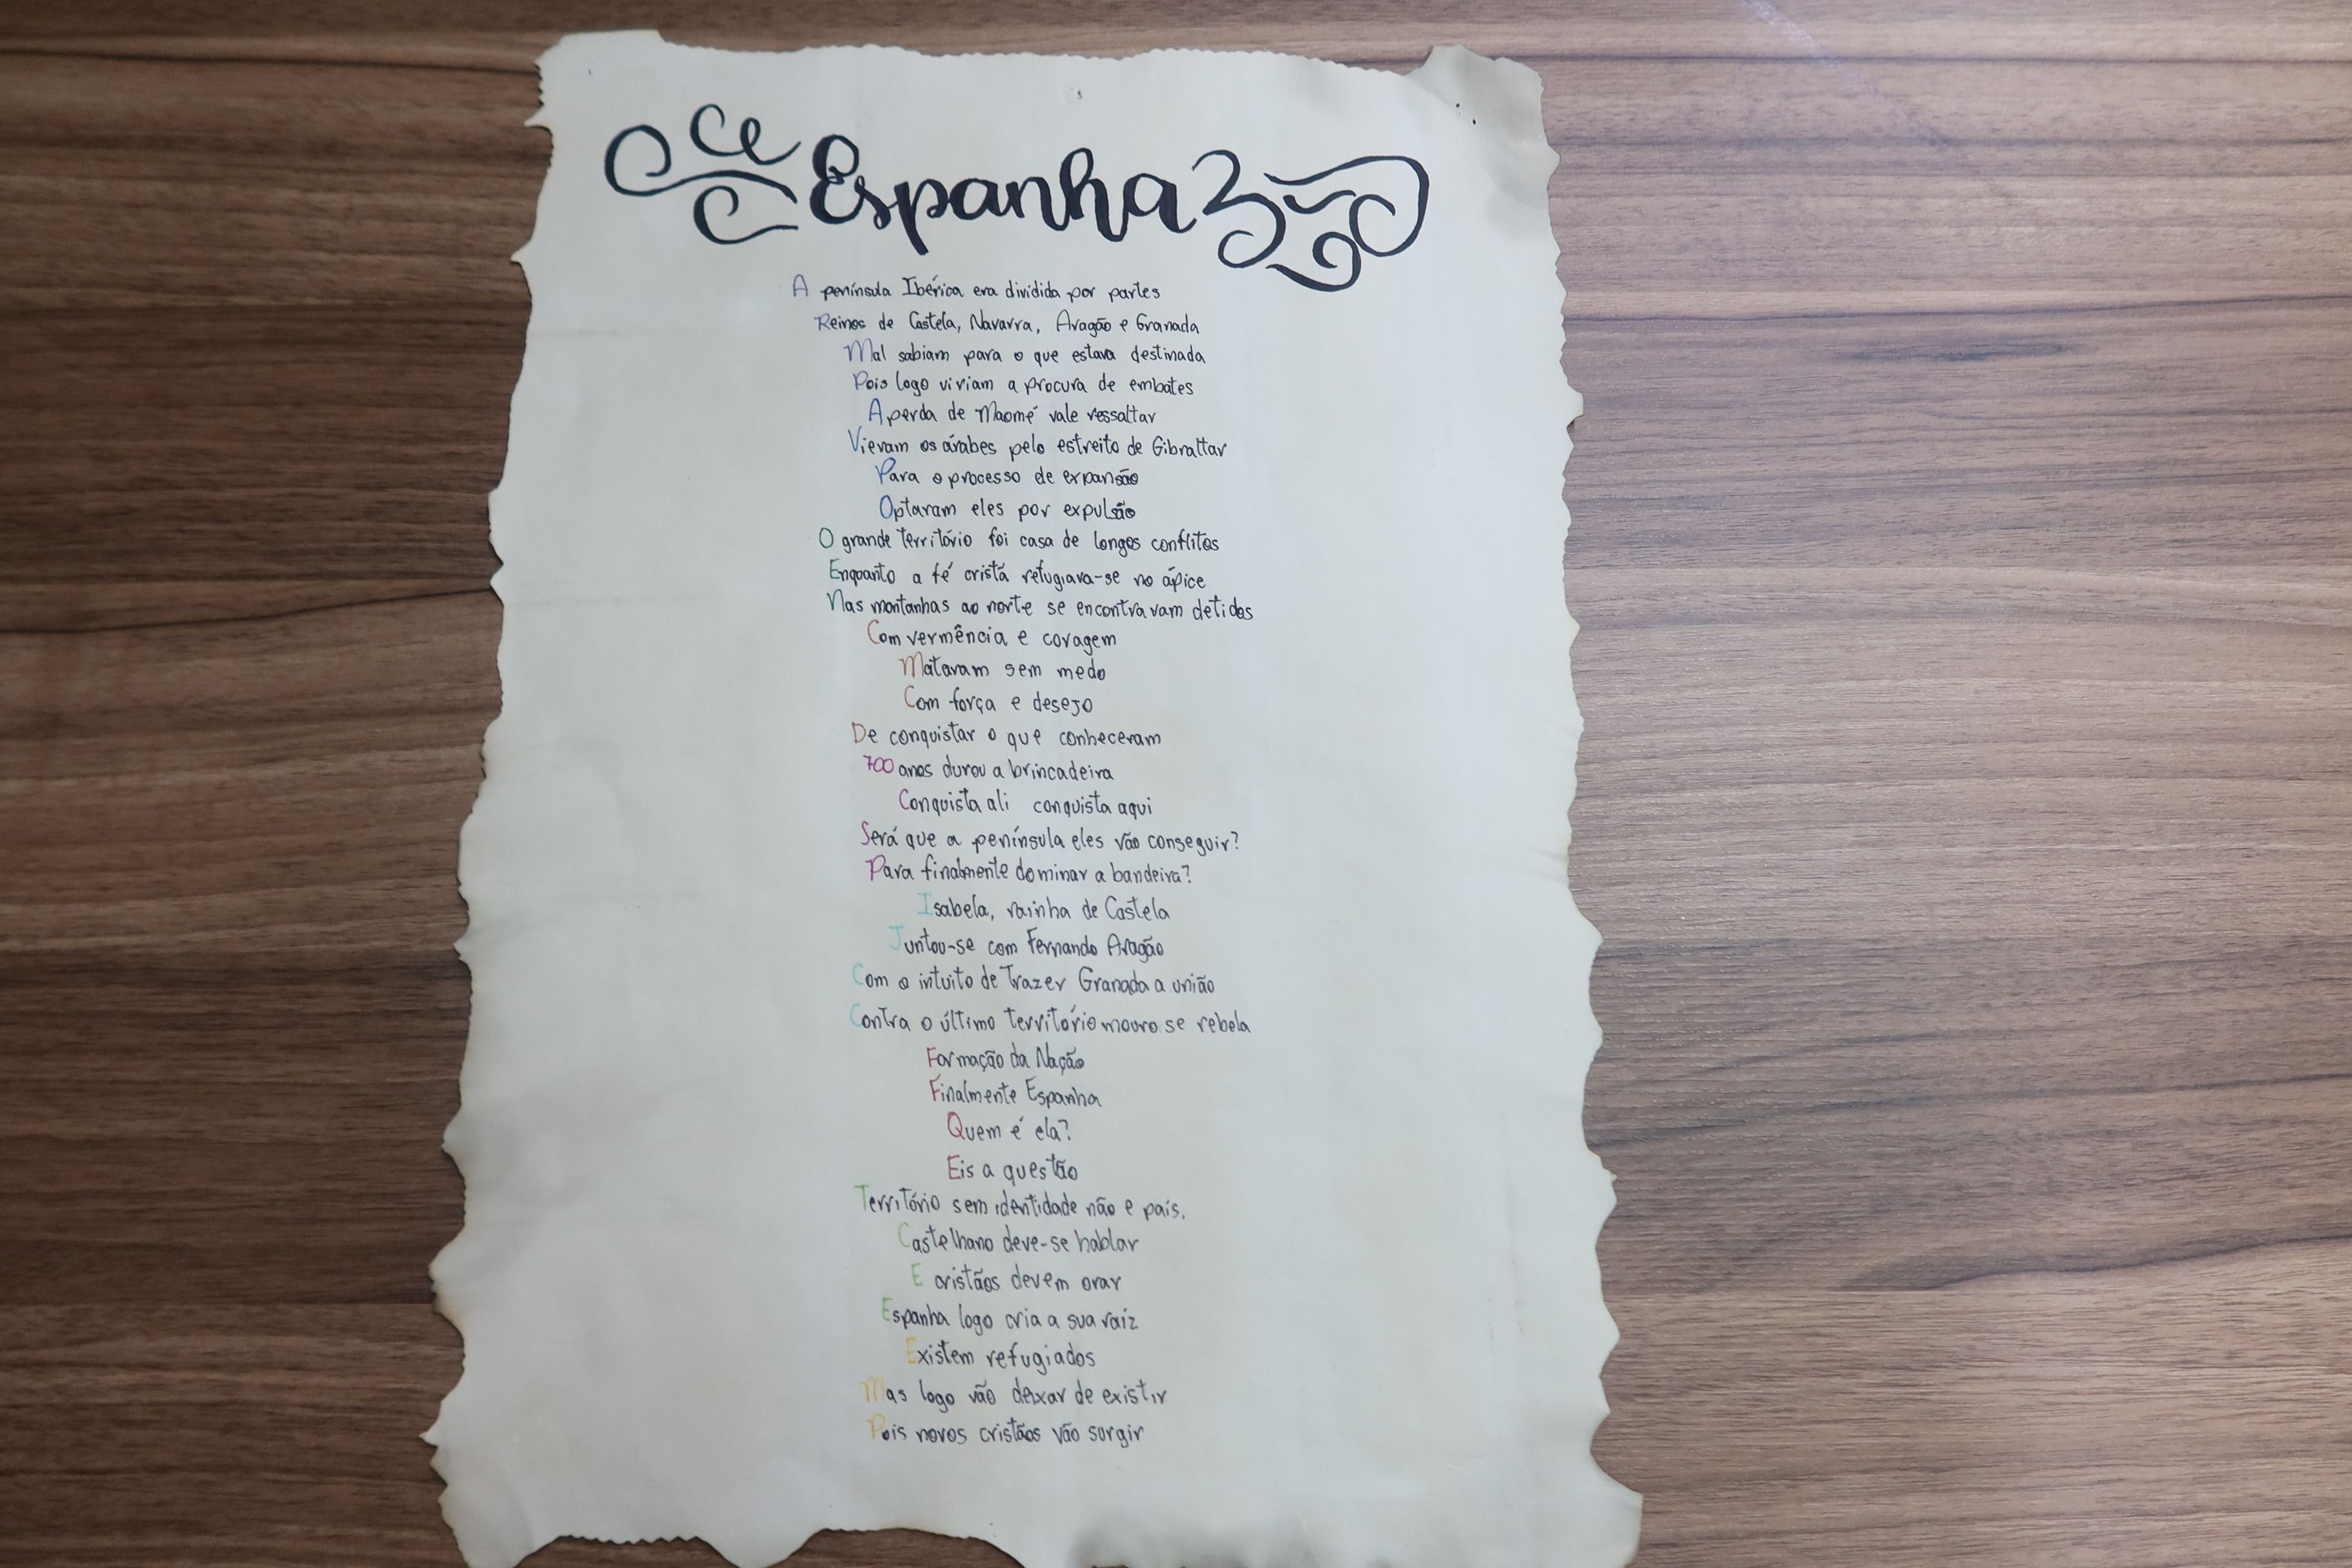 Espanha
A península Ibérica era dividida por partes
Reinos de Castela, Navarra, Aragão e Granada
Mal sabiam para o que estava destinada
Pois logo viriam a procura de embates
A perda de Maomé vale ressaltar
Vieram os árabes pelo estreito de Gibraltar
Para o processo de expansão
Optaram eles por expulsão
O grande território foi casa de longos conflitos
Enquanto a fé cristã refugiava-se no ápice
Nas montanhas ao norte se encontravam detidos
Com vermência e coragem
Mataram sem medo
Com força e desejo
De conquistar o que conheceram
700 anos durou a brincadeira
Conquista ali conquista aqui
Será que a península eles vão conseguir?
Para finalmente dominar a bandeira?
Isabela, rainha de Castela
Juntou-se com Fernando Aragão
Com o intuito de trazer Granada a união
Contra o último território mouro se rebela
Formação da Nação
Finalmente Espanha
Quem é ela?
Eis a questão
Território sem identidade não e país.
Castelhano deve-se hablar
E cristãos devem orar
Espanha logo cria a sua raiz
Existem refugiados
Mas logo vão deixar de existir
Pois novos cristãos vão surgir